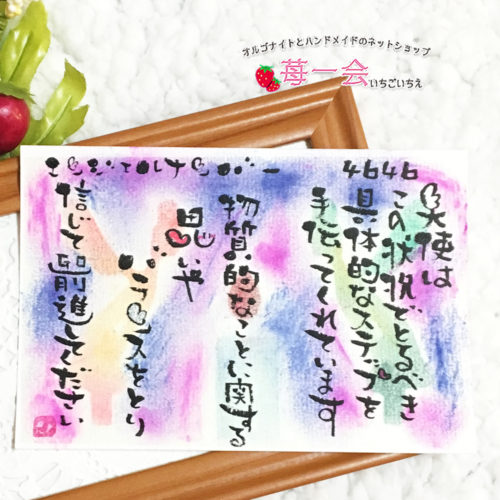 オルゴナイトとハンドメイドのネットショップ
苺一会 いちごいちえ
エンジェルナンバー
4646
天使は
この状況でとるべき
具体的なステップを
手伝ってくれています
物質的なことに関する
思いや
バランスをとり
信じて前進してください